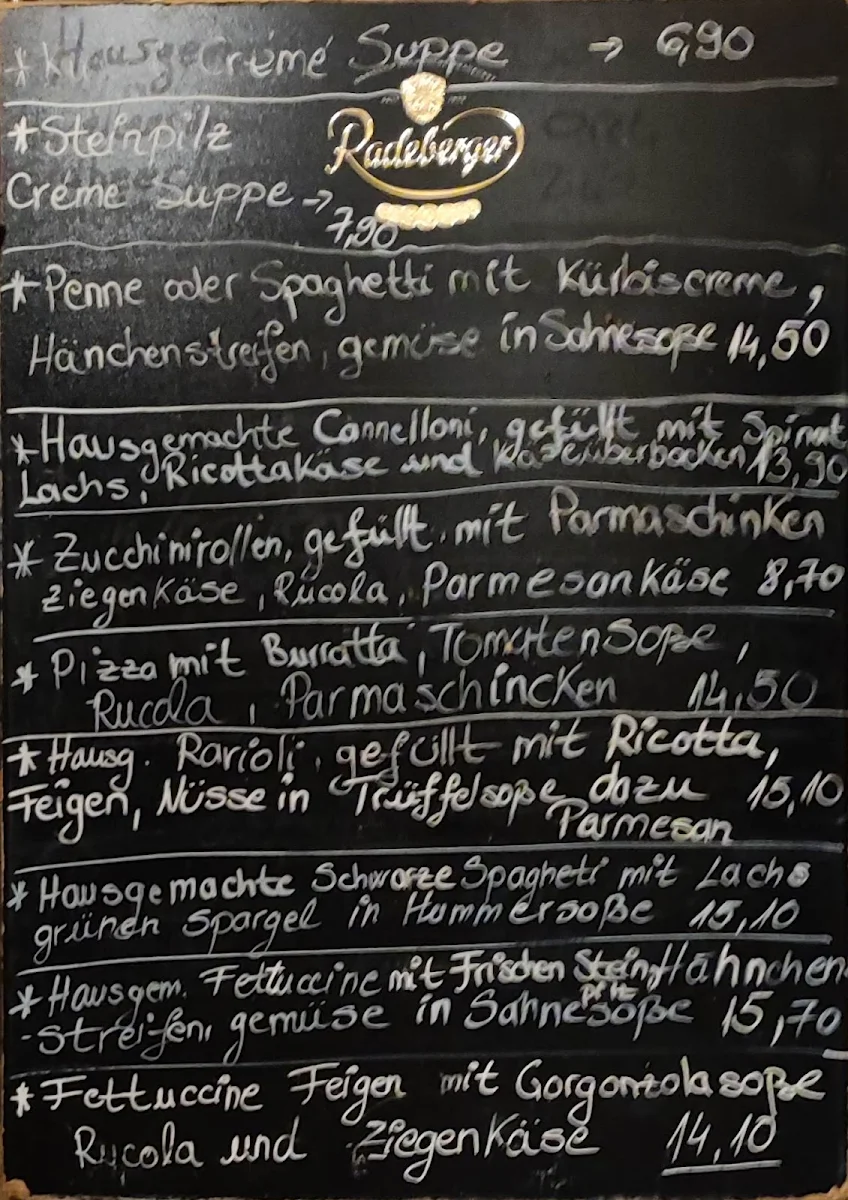 * Hausge Créme Suppe → 6,90
* Steinpilz
Créme Suppe →
7,90
Radeberger
* Penne oder Spaghetti mit Kürbiscreme,
Hänchenstreifen, gemüse in Sahnesoße 14,50
* Hausgemachte Cannelloni, gefüllt mit Spinat
Lachs, Ricottakäse und Käseüberbacken 13,90
* Zucchinirollen, gefüllt mit Parmaschinken
Ziegenkäse, Rucola, Parmesankäse 8,70
* Pizza mit Burratta, Tomatensoße,
Rucola, Parmaschincken 14,50
* Hausg. Ravioli, gefüllt mit Ricotta,
Feigen, Nüsse in Trüffelsoße dazu 15,10
Parmesan
* Hausgemachte Schwarze Spagheti mit Lachs
grünen Spargel in Hummersoße 15,10
* Hausgem. Fettuccine mit Frischen Stein, Hähnchen
pilz
-streifen, gemüse in Sahnesoße 15,70
* Fettuccine Feigen mit Gorgonzolasoße
Rucola und Ziegenkäse 14,10